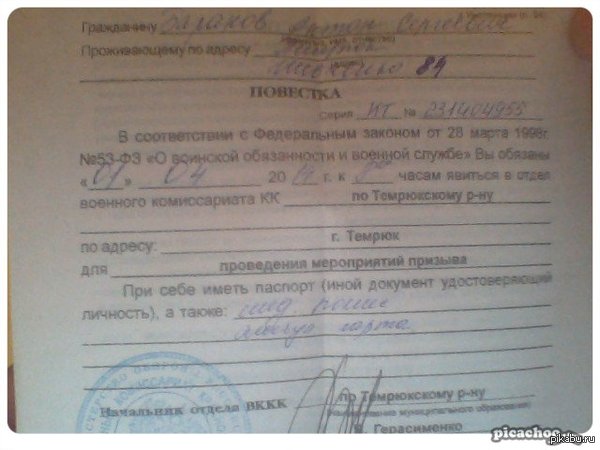 Гражданину Сергеевич
Проживающему по адресу
89
ПОВЕСТКА
Серия НТ № 231404955
В соответствии с Федеральным законом от 28 марта 1998г.
№53-ФЗ «О воинской обязанности и военной службе» Вы обязаны
«01» 04 2014 г. к часам явиться в отдел
военного комиссариата КК по Темрюкскому р-ну
по адресу: г. Темрюк
для проведения мероприятий призыва
При себе иметь паспорт (иной документ удостоверяющий
личность), а также:
карта
Начальник отдела ВККК по Темрюкскому р-ну
Герасименко
picachoo.ru
pikabu.ru